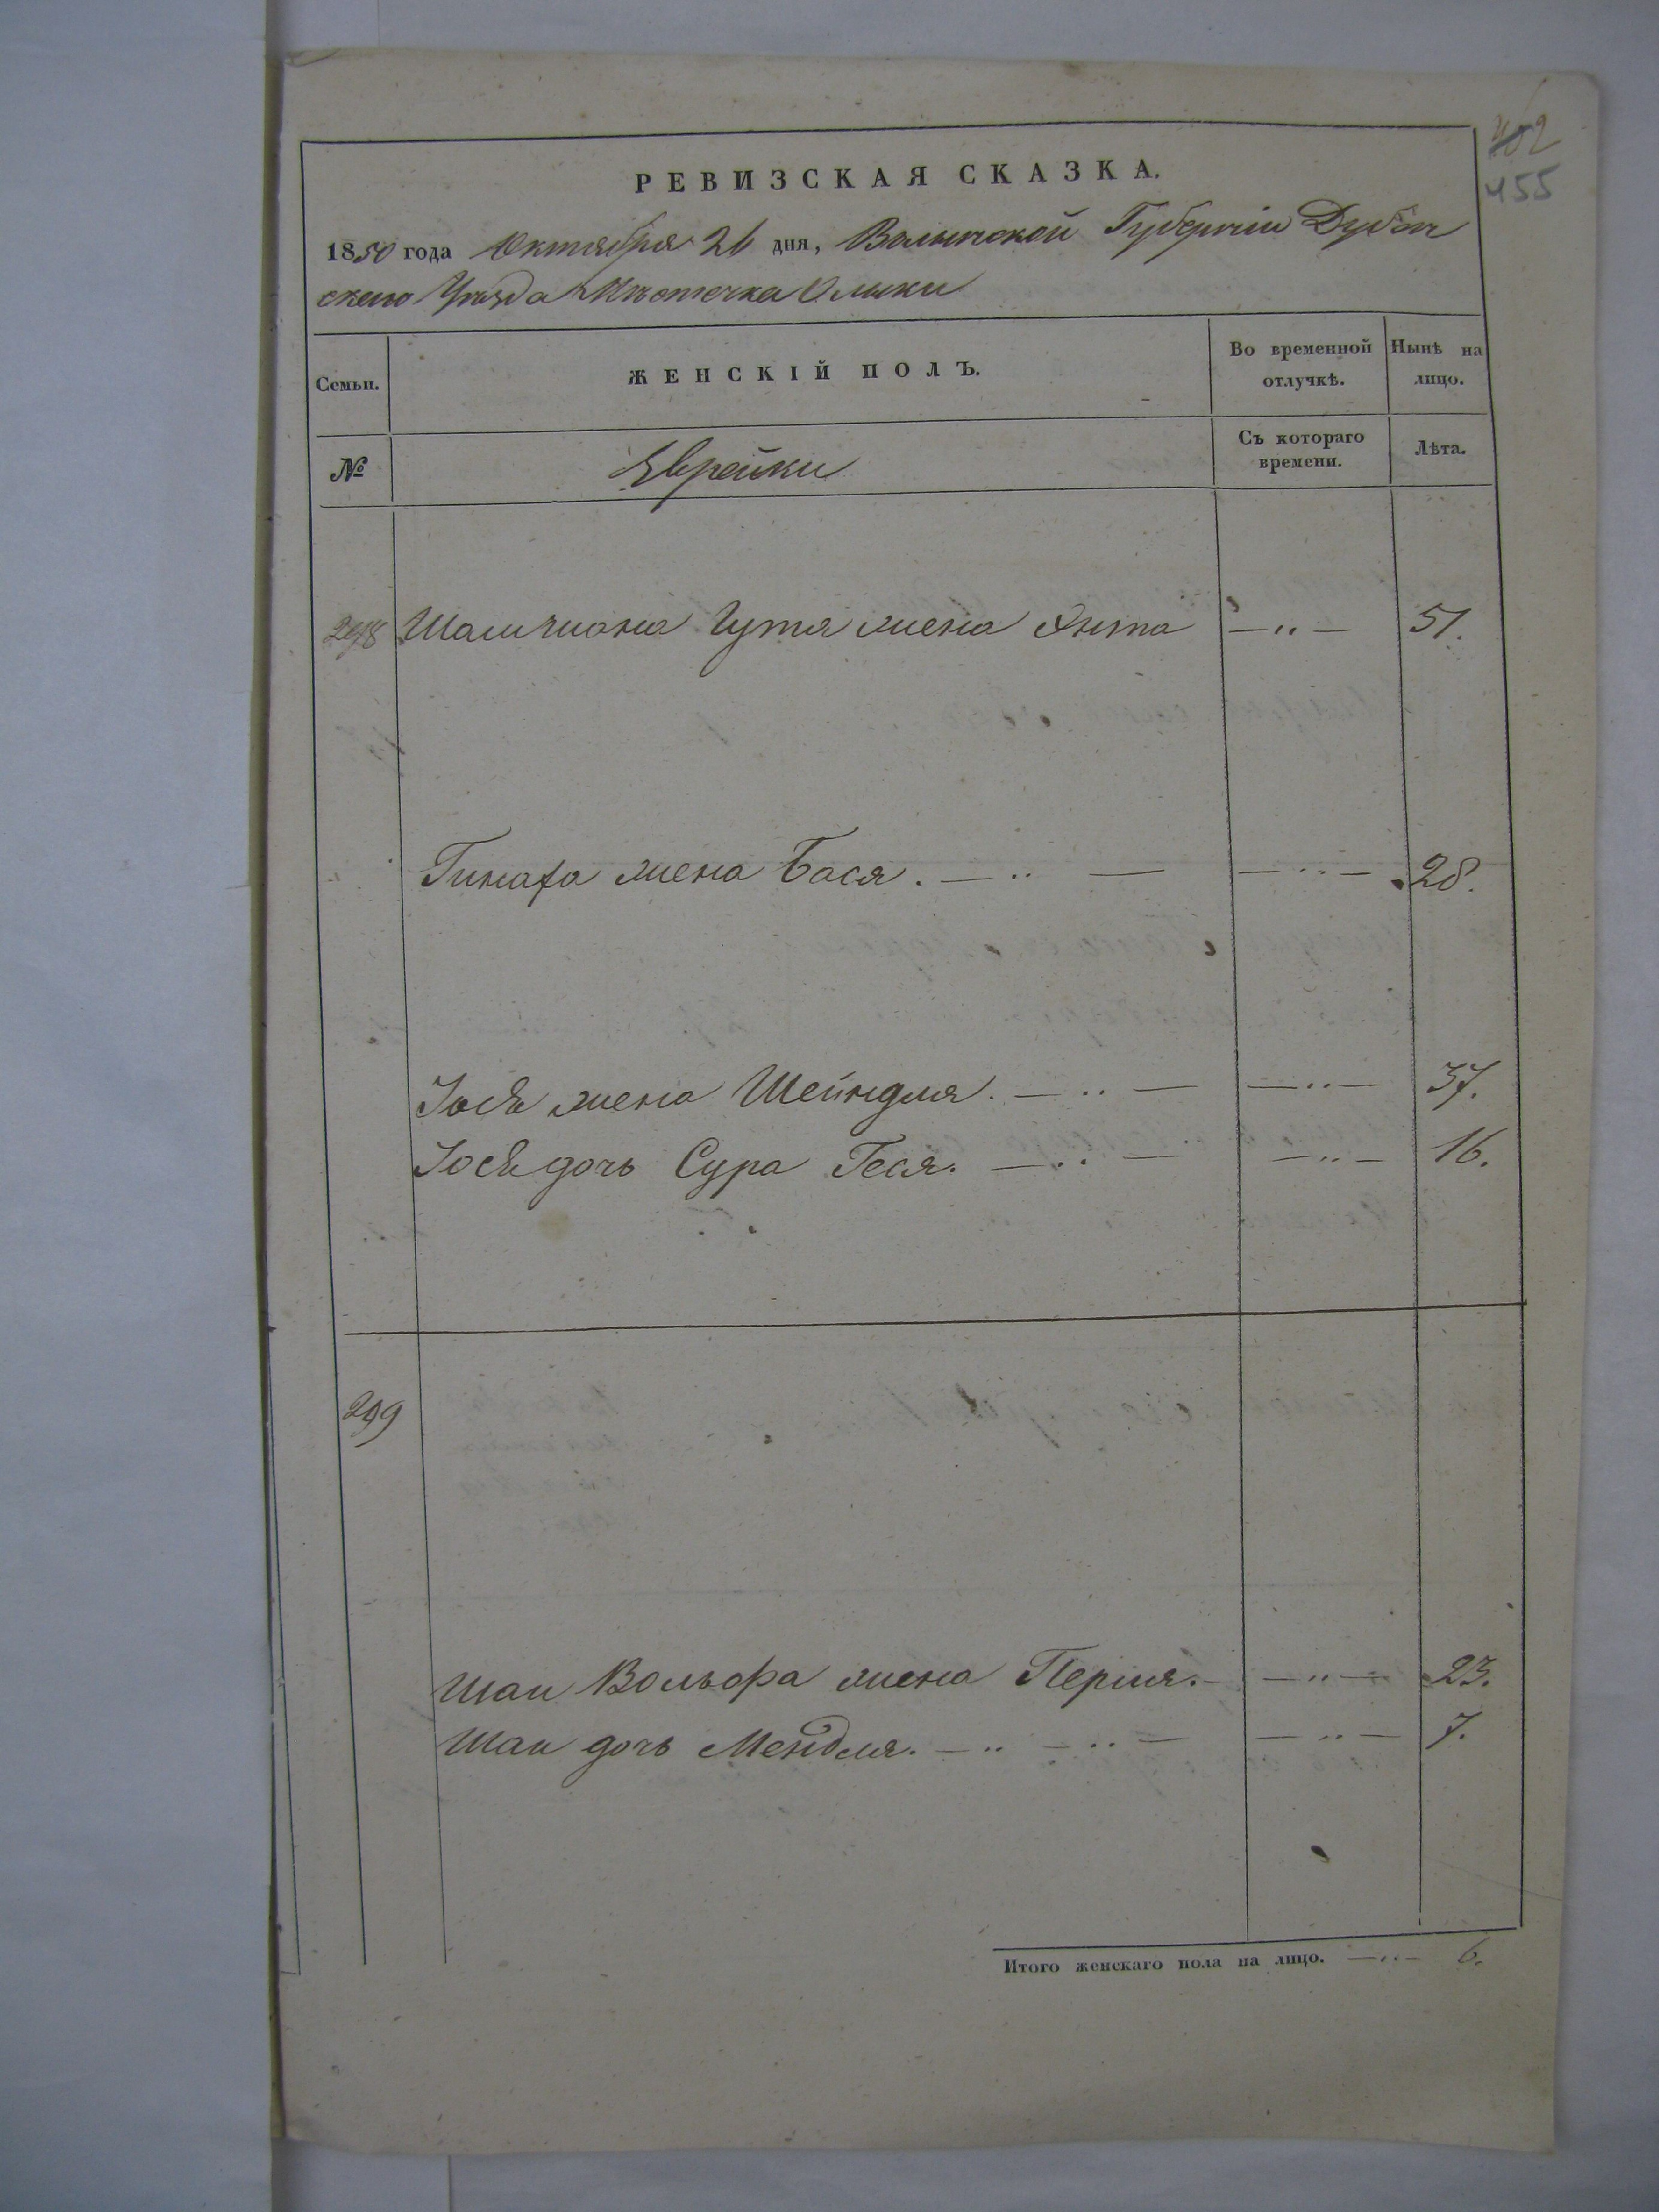 402
455
РЕВИЗСКАЯ СКАЗКА.
1850 года Октября 26 дня, Волынской Губерніи Дубен
скаго Уѣзда Мѣстечка Олыки
Семьи. ЖЕНСКІЙ ПОЛЪ. Во временной отлучкѣ. Нынѣ на лицо.
№ Еврейки Съ котораго времени. Лѣта.
298 Гутя жена Янта — „ — 51.
жена Бася. — „ — — „ — 28.
Іося жена Шейндля. — „ — — „ — 37.
Іося дочь Сура Геся. — „ — — „ — 16.
299
Шаи Вольфа жена Перля. — — „ — 23.
Шаи дочь Мендля. — „ — „ — — „ — 7.
Итого женскаго пола на лицо. — „ — 6.